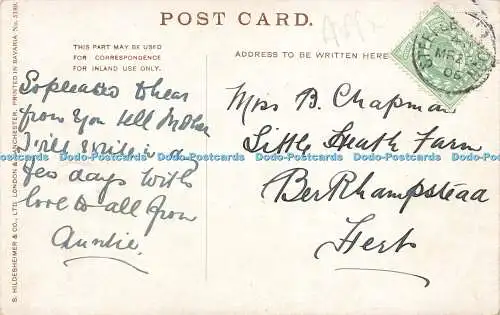 POST CARD.
THIS PART MAY BE USED
FOR CORRESPONDENCE
FOR INLAND USE ONLY.
ADDRESS TO BE WRITTEN HERE.
So pleased to hear
from you tell Mother
I will write in a
few days with
love to all from
Auntie.
Miss B. Chapman
Little Heath Farm
Berkhampstead
Herts
S. HILDESHEIMER & CO., LTD. LONDON & MANCHESTER. PRINTED IN BAVARIA No.
Postcards-Data Postcards-Data Postcards-Data Postcards-Data Postcards-Data Postcards-Data